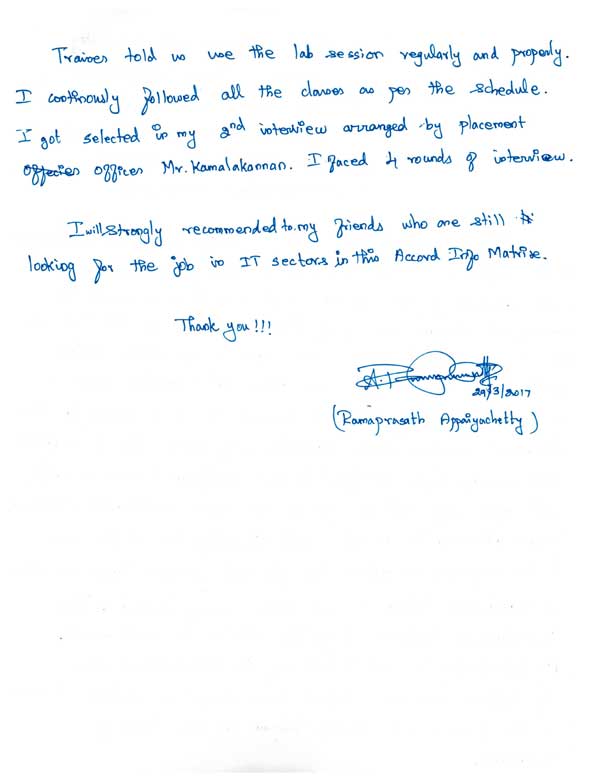 Trainers told us use the lab session regularly and properly.
I continously followed all the classes as per the schedule.
I got selected in my 2nd interview arranged by placement
officer Mr. Kamalakannan. I faced 4 rounds of interview.
I will strongly recommended to my friends who are still
looking for the job in IT sectors in this Accord Info Matrix.
Thank you!!!
29/3/2017
(Ramaprasath Appaiyachetty)